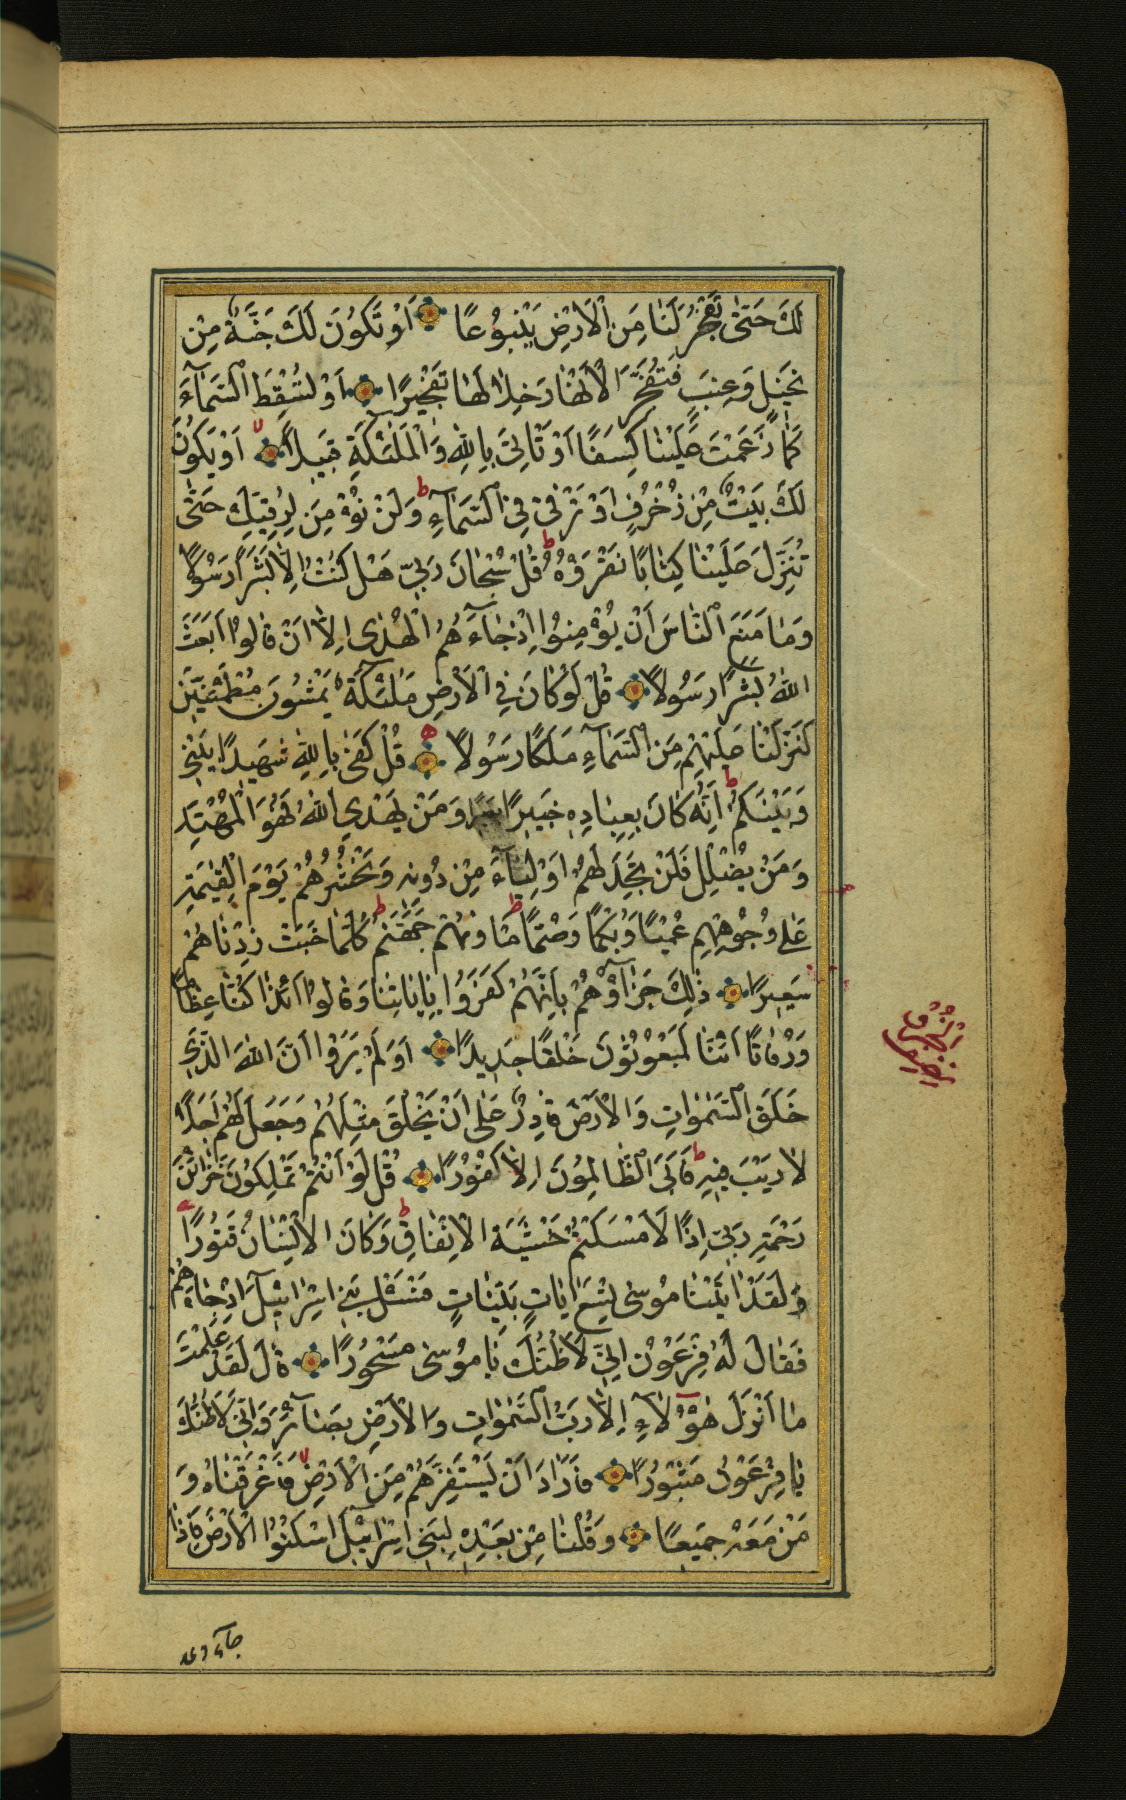 لَكَ حَتّٰى تَفْجُرَ لَنَا مِنَ الْاَرْضِ يَنْبُوعًا اَوْ تَكُونَ لَكَ جَنَّةٌ مِنْ
نَخِيلٍ وَعِنَبٍ فَتُفَجِّرَ الْاَنْهَارَ خِلَالَهَا تَفْجِيرًا اَوْ تُسْقِطَ السَّمَآءَ
كَمَا زَعَمْتَ عَلَيْنَا كِسَفًا اَوْ تَاْتِىَ بِاللّٰهِ وَالْمَلٰئِكَةِ قَبِيلًا اَوْ يَكُونَ
لَكَ بَيْتٌ مِنْ زُخْرُفٍ اَوْ تَرْقٰى فِى السَّمَآءِ ط وَلَنْ نُؤْمِنَ لِرُقِيِّكَ حَتّٰى
تُنَزِّلَ عَلَيْنَا كِتَابًا نَقْرَؤُهُ ط قُلْ سُبْحَانَ رَبِّى هَلْ كُنْتُ اِلَّا بَشَرًا رَسُولًا
وَمَا مَنَعَ النَّاسَ اَنْ يُؤْمِنُوا اِذْ جَآءَهُمُ الْهُدٰى اِلَّا اَنْ قَالُوا اَبَعَثَ
اللّٰهُ بَشَرًا رَسُولًا قُلْ لَوْ كَانَ فِى الْاَرْضِ مَلٰئِكَةٌ يَمْشُونَ مُطْمَئِنِّينَ
لَنَزَّلْنَا عَلَيْهِمْ مِنَ السَّمَآءِ مَلَكًا رَسُولًا قُلْ كَفٰى بِاللّٰهِ شَهِيدًا بَيْنِى
وَبَيْنَكُمْ ط اِنَّهُ كَانَ بِعِبَادِهِ خَبِيرًا بَصِيرًا وَمَنْ يَهْدِى اللّٰهُ فَهُوَ الْمُهْتَدِ
وَمَنْ يُضْلِلْ فَلَنْ تَجِدَ لَهُمْ اَوْلِيَآءَ مِنْ دُونِهِ وَنَحْشُرُهُمْ يَوْمَ الْقِيٰمَةِ
عَلٰى وُجُوهِهِمْ عُمْيًا وَبُكْمًا وَصُمًّا ط مَاْوٰيهُمْ جَهَنَّمُ ط كُلَّمَا خَبَتْ زِدْنَاهُمْ
سَعِيرًا ذٰلِكَ جَزَآؤُهُمْ بِاَنَّهُمْ كَفَرُوا بِاٰيَاتِنَا وَقَالُوا ءَاِذَا كُنَّا عِظَامًا
وَرُفَاتًا ءَاِنَّا لَمَبْعُوثُونَ خَلْقًا جَدِيدًا اَوَلَمْ يَرَوْا اَنَّ اللّٰهَ الَّذِى
خَلَقَ السَّمٰوَاتِ وَالْاَرْضَ قَادِرٌ عَلٰى اَنْ يَخْلُقَ مِثْلَهُمْ وَجَعَلَ لَهُمْ اَجَلًا
لَا رَيْبَ فِيهِ ط فَاَبَى الظَّالِمُونَ اِلَّا كُفُورًا قُلْ لَوْ اَنْتُمْ تَمْلِكُونَ خَزَآئِنَ
رَحْمَةِ رَبِّى اِذًا لَاَمْسَكْتُمْ خَشْيَةَ الْاِنْفَاقِ ط وَكَانَ الْاِنْسَانُ قَتُورًا
وَلَقَدْ اٰتَيْنَا مُوسٰى تِسْعَ اٰيَاتٍ بَيِّنَاتٍ فَسْئَلْ بَنِى اِسْرَآئِيلَ اِذْ جَآءَهُمْ
فَقَالَ لَهُ فِرْعَوْنُ اِنِّى لَاَظُنُّكَ يَا مُوسٰى مَسْحُورًا قَالَ لَقَدْ عَلِمْتَ
مَا اَنْزَلَ هٰؤُلَآءِ اِلَّا رَبُّ السَّمٰوَاتِ وَالْاَرْضِ بَصَآئِرَ وَاِنِّى لَاَظُنُّكَ
يَا فِرْعَوْنُ مَثْبُورًا فَاَرَادَ اَنْ يَسْتَفِزَّهُمْ مِنَ الْاَرْضِ فَاَغْرَقْنَاهُ وَ
مَنْ مَعَهُ جَمِيعًا وَقُلْنَا مِنْ بَعْدِهِ لِبَنِى اِسْرَآئِيلَ اسْكُنُوا الْاَرْضَ فَاِذَا
جَآءَ وعد